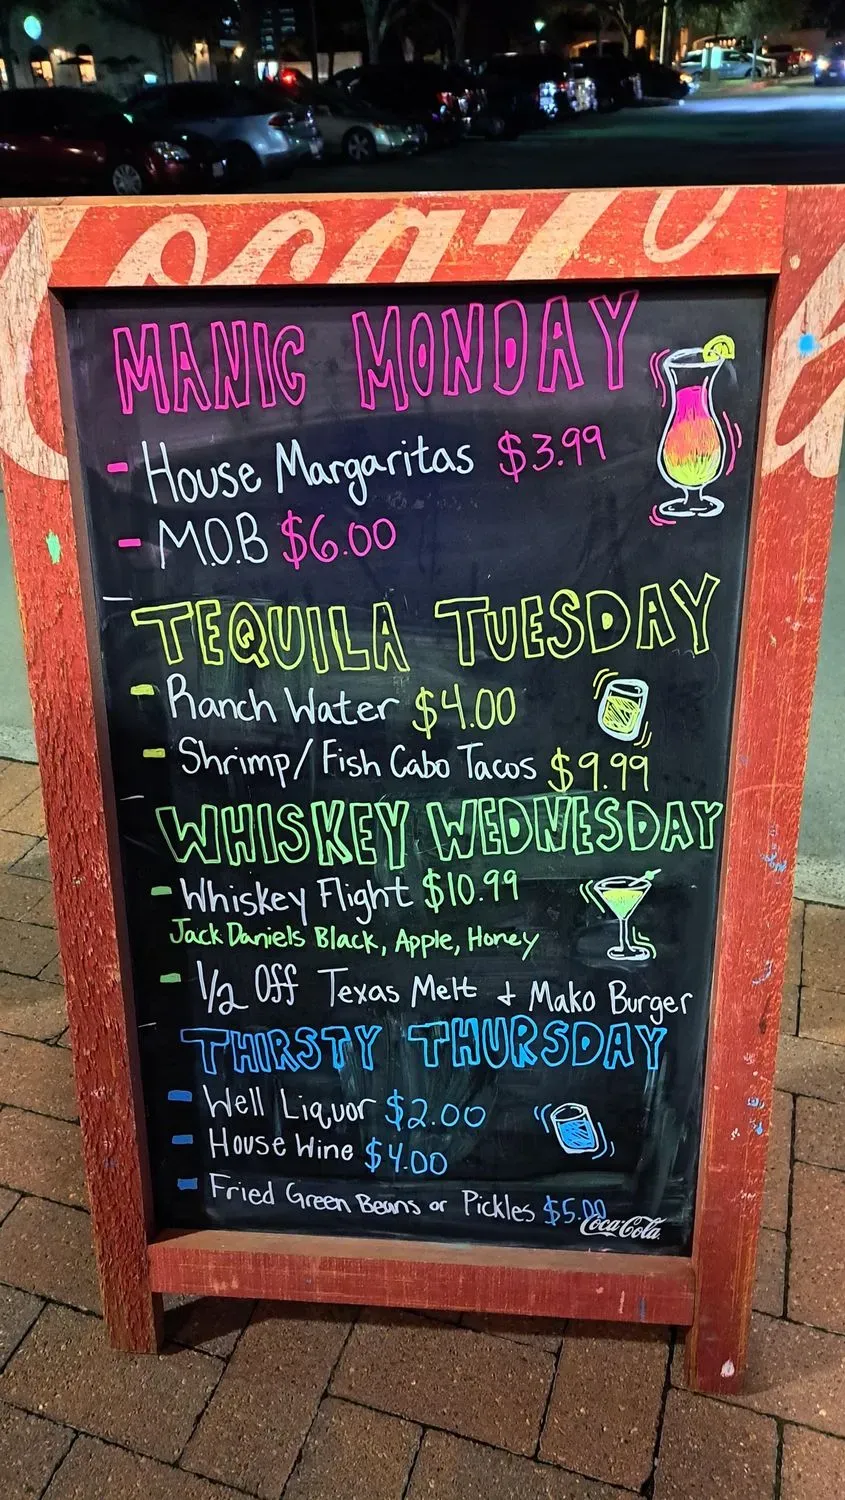 Coca-Co
MANIC MONDAY
- House Margaritas $3.99
- M.O.B $6.00
TEQUILA TUESDAY
- Ranch Water $4.00
- Shrimp/Fish Cabo Tacos $9.99
WHISKEY WEDNESDAY
- Whiskey Flight $10.99
Jack Daniels Black, Apple, Honey
- 1/2 Off Texas Melt + Mako Burger
THIRSTY THURSDAY
- Well Liquor $2.00
- House Wine $4.00
- Fried Green Beans or Pickles $5.00
Coca-Cola